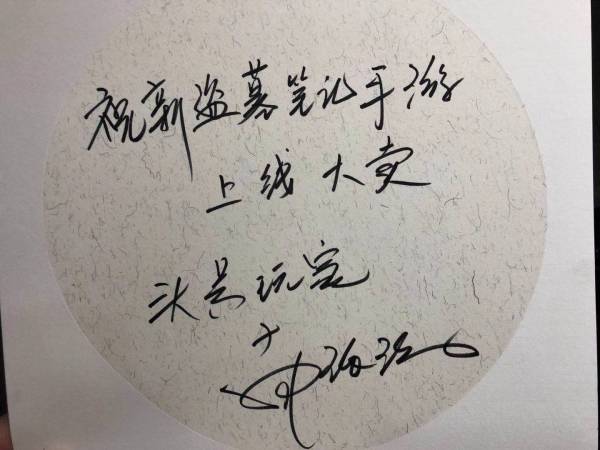 祝新盗墓笔记手游
上线大卖
头号玩家